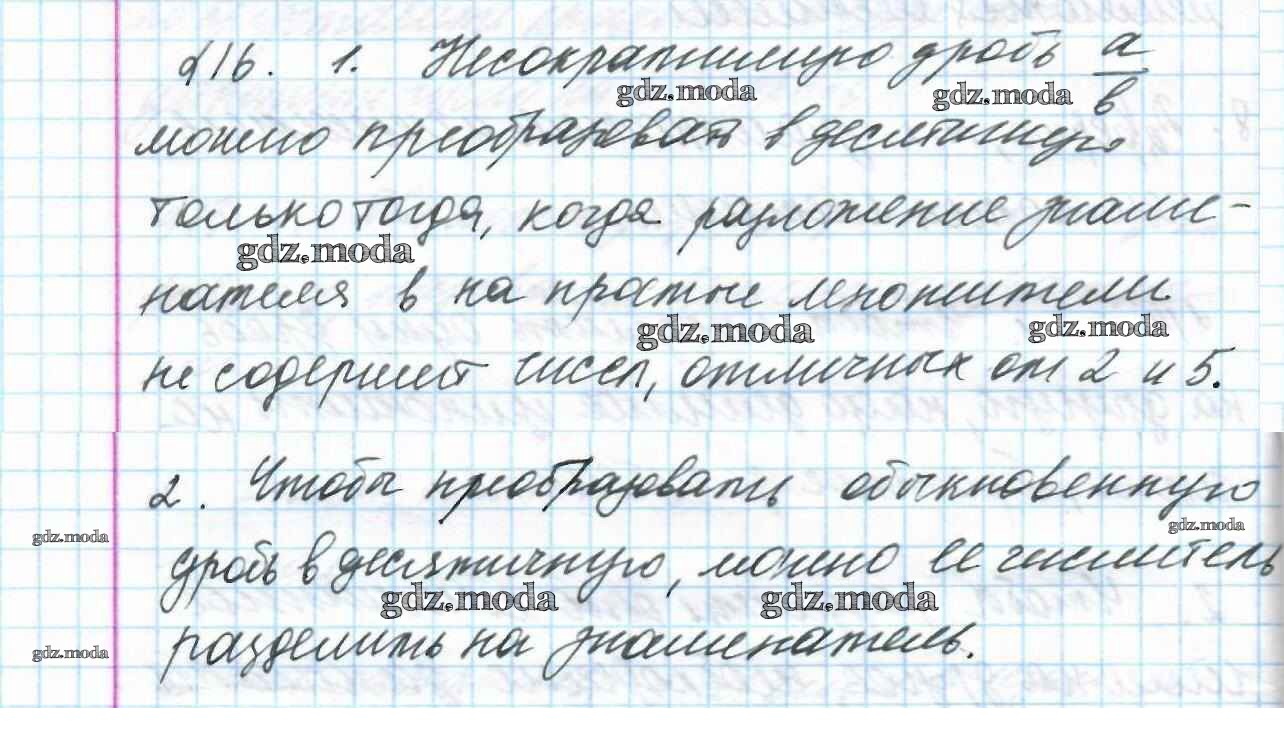 §16. 1. Несократимую дробь a/b
можно преобразовать в десятичную
только тогда, когда разложение знаме-
нателя в на простые множители
не содержит чисел, отличных от 2 и 5.
2. Чтобы преобразовать обыкновенную
дробь в десятичную, можно ее числитель
разделить на знаменатель.
gdz.moda
gdz.moda
gdz.moda
gdz.moda
gdz.moda
gdz.moda
gdz.moda
gdz.moda
gdz.moda
gdz.moda